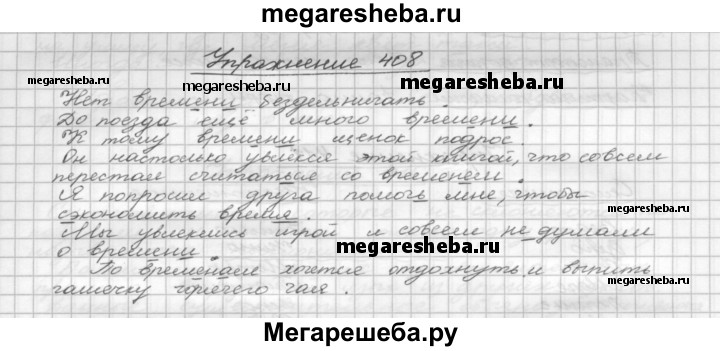 megaresheba.ru
Упражнение 408
megaresheba.ru megaresheba.ru
Нет времени бездельничать.
До поезда ещё много времени.
megaresheba.ru
К тому времени щенок подрос.
Он настолько увлёкся этой книгой, что совсем
перестал считаться со временем.
Я попросил друга помочь мне, чтобы
сэкономить время.
megaresheba.ru
Мы увлеклись игрой и совсем не думали
о времени.
megaresheba.ru
По временам хочется отдохнуть и выпить
чашечку горячего чая.
Мегарешеба.ру